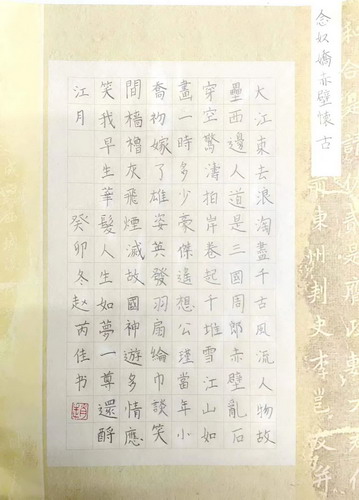 念奴嬌赤壁懷古
大江東去浪淘盡千古風流人物故
壘西邊人道是三國周郎赤壁亂石
穿空驚濤拍岸卷起千堆雪江山如
畫一時多少豪傑遙想公瑾當年小
喬初嫁了雄姿英發羽扇綸巾談笑
間檣櫓灰飛煙滅故國神遊多情應
笑我早生華髮人生如夢一尊還酹
江月 癸卯冬赵芮佳书